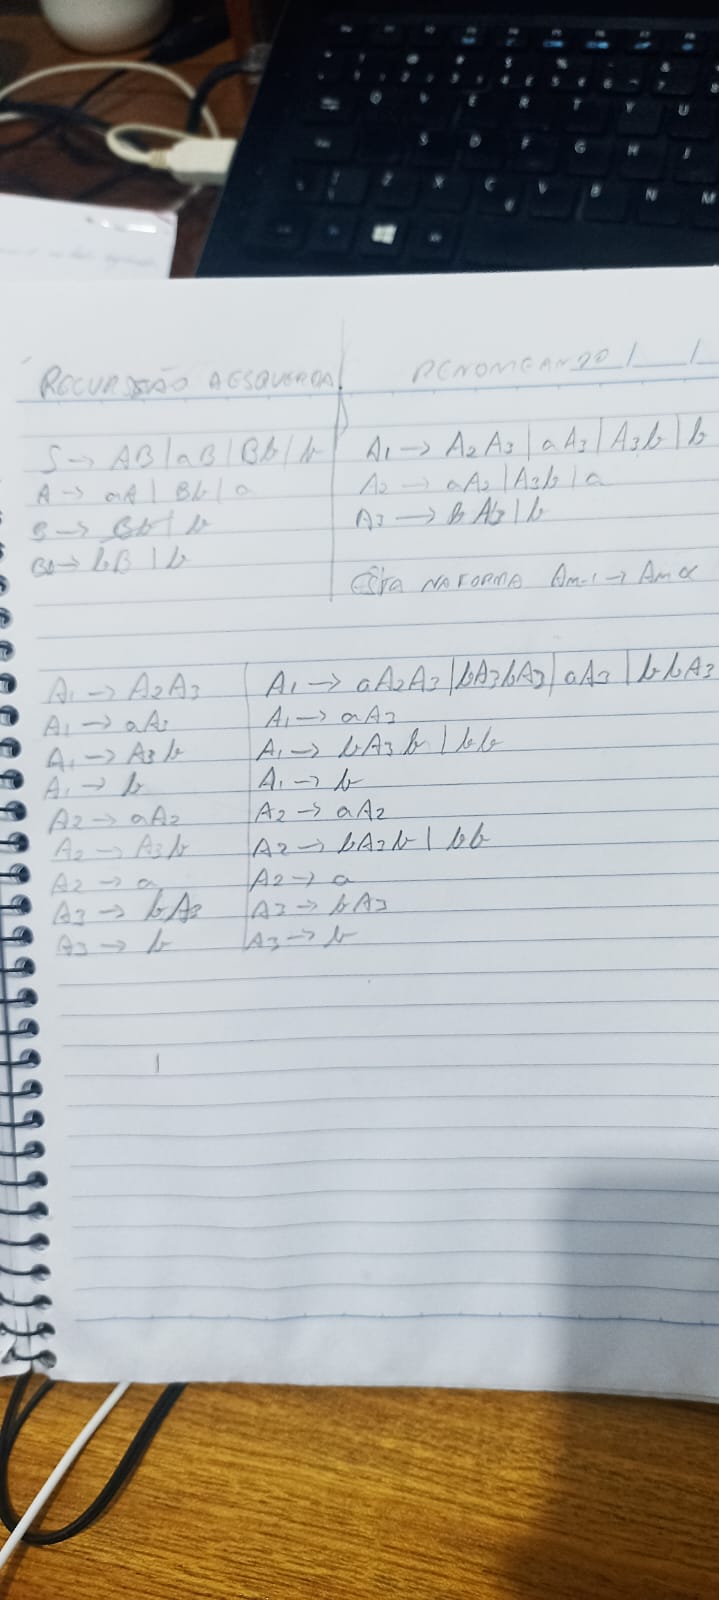 RECURSSÃO A ESQUERDA
S → AB | aB | Bb | b
A → aA | Bb | a
B → Bb | b
B → bB | b
RENOMEANDO
A1 → A2 A3 | a A3 | A3 b | b
A2 → a A2 | A3 b | a
A3 → b A3 | b
ESTA NA FORMA Am-1 → Am α
A1 → A2 A3
A1 → a A3
A1 → A3 b
A1 → b
A2 → a A2
A2 → A3 b
A2 → a
A3 → b A3
A3 → b
A1 → a A2 A3 | b A3 b A3 | a A3 | b b A3
A1 → a A3
A1 → b A3 b | b b
A1 → b
A2 → a A2
A2 → b A3 b | b b
A2 → a
A3 → b A3
A3 → b